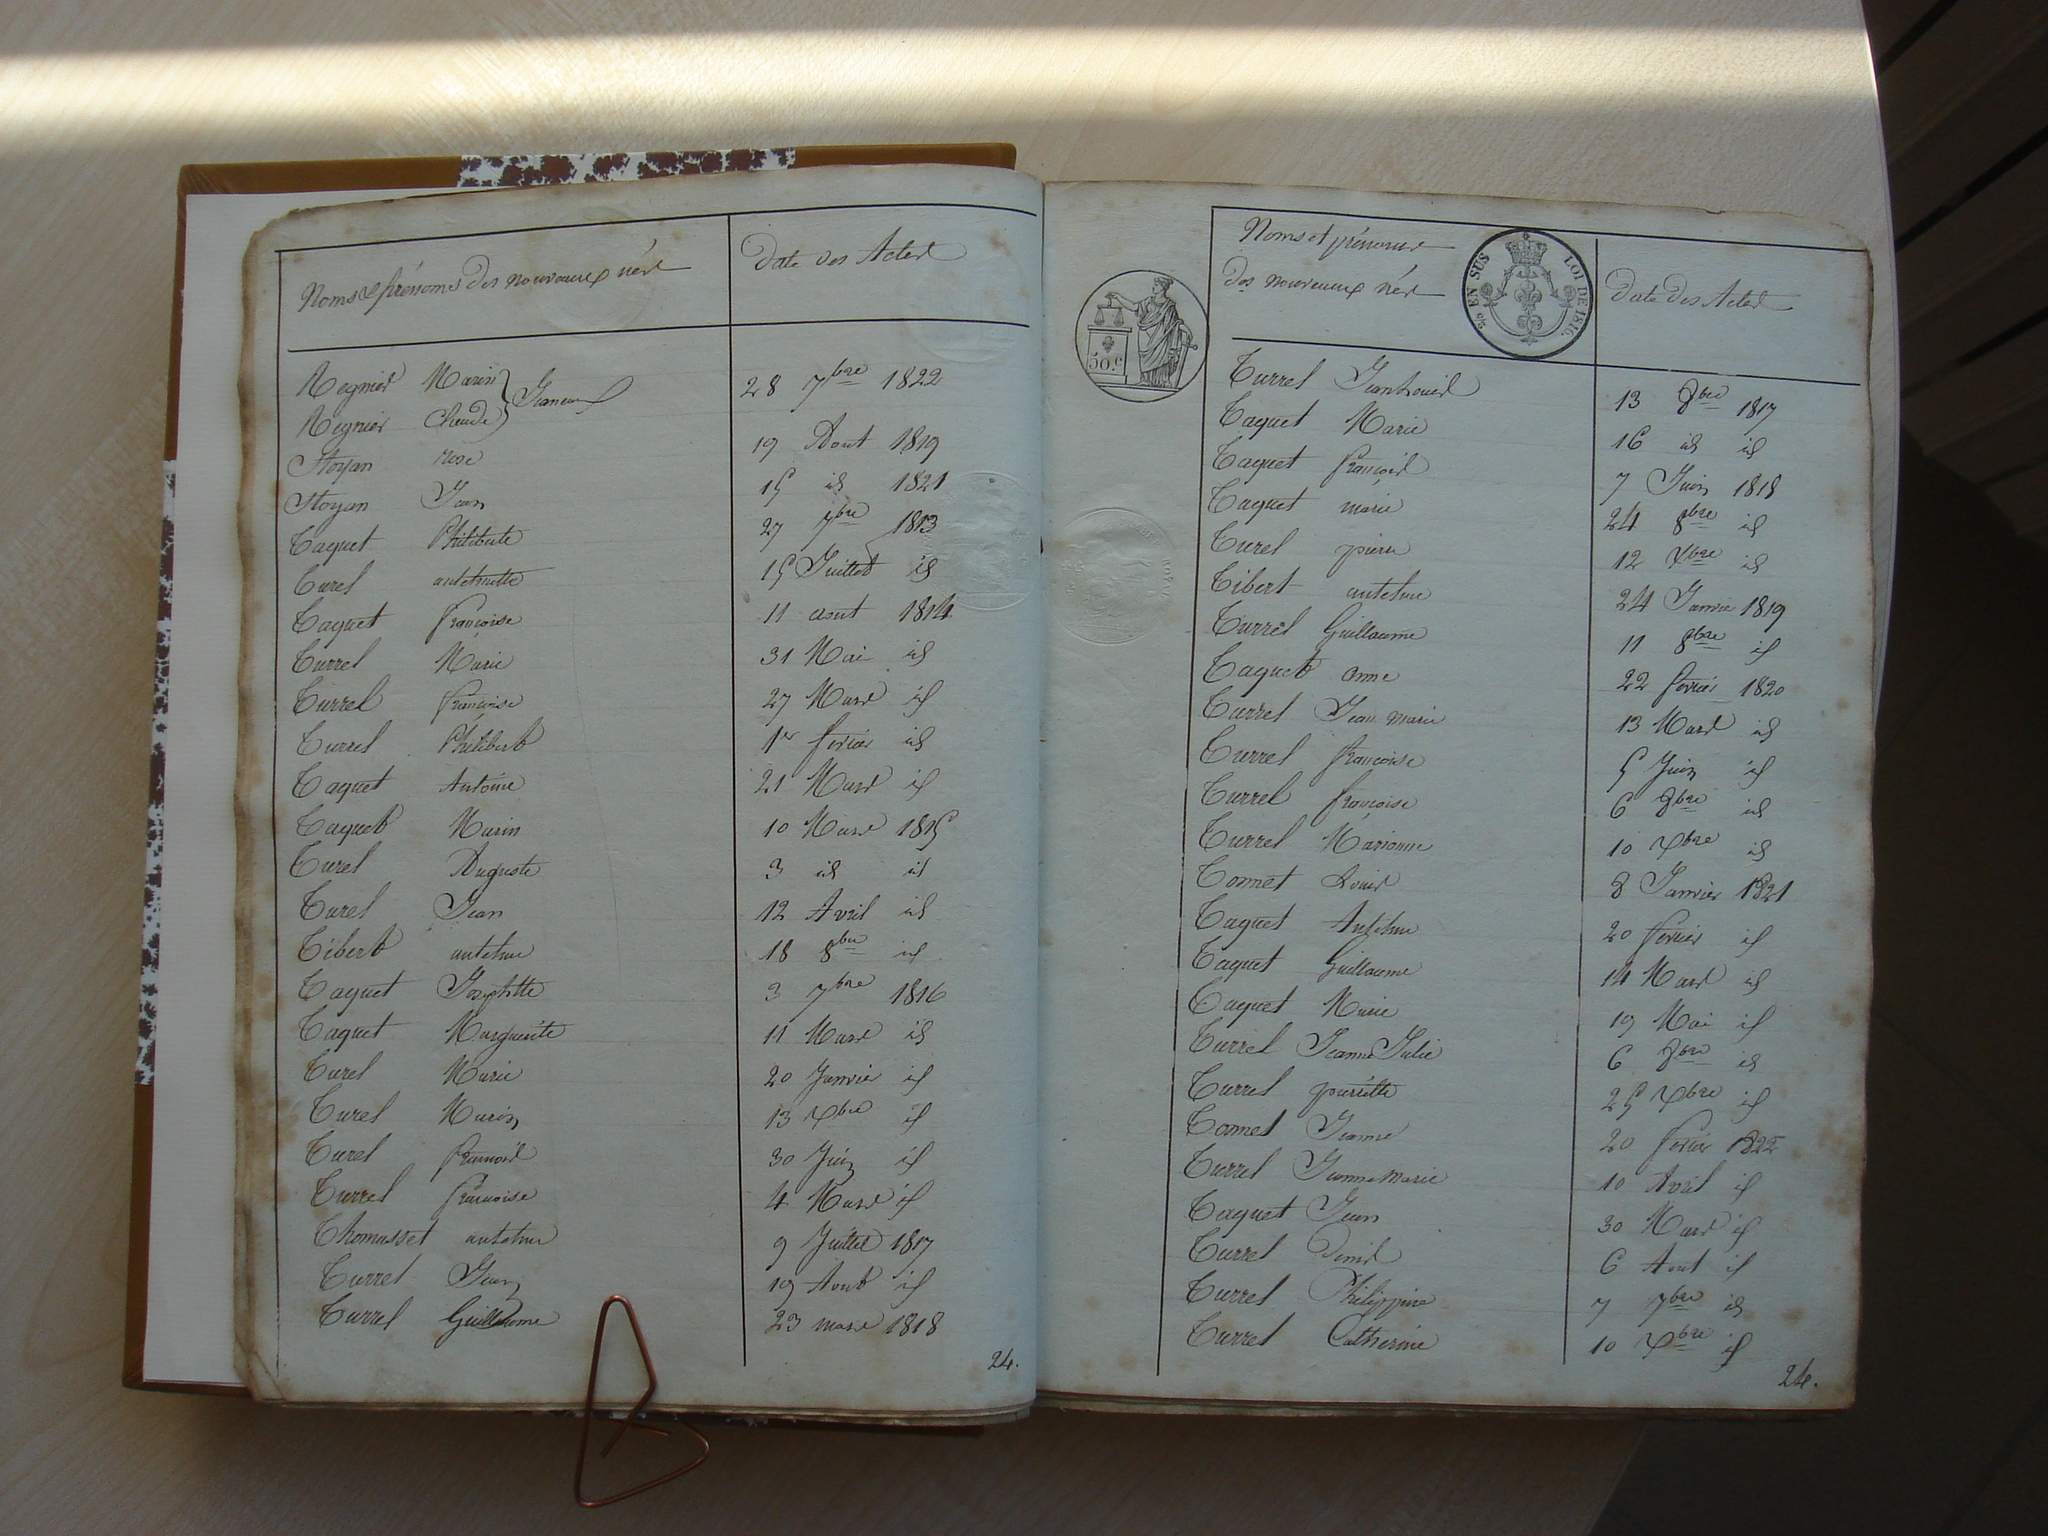 Noms et prénoms des nouveaux nés
Date des Actes
Regnier Marin } Jumeaux 28 7bre 1822
Regnier Claude
Stoyan rose 19 Aout 1819
Stoyan Jean 15 id 1821
Taquet Philiberte 27 7bre 1813
Turel antelmette 15 Juillet id
Taquet françoise 11 aout 1814
Turrel Marie 31 Mai id
Turrel françoise 27 Mars id
Turrel Philibert 1er fevrier id
Taquet Antoine 21 Mars id
Taquet Marin 10 Mars 1815
Turel Auguste 3 id id
Turel Jean 12 Avril id
Tibert antelme 18 8bre id
Taquet Josephtte 3 7bre 1816
Taquet Marguerite 11 Mars id
Turel Marie 20 Janvier id
Turel Marin 13 Xbre id
Turel françois 30 Juin id
Turrel françoise 4 Mars id
Thomasset antelme 9 Juillet 1817
Turrel Jean 19 Aout id
Turrel Guillaume 23 mars 1818
24.
Noms et prénoms
des nouveaux nés
Date des Actes
EN SUS LOI DE 1816.
50.c
Turrel Jean Louis 13 8bre 1817
Taquet Marie 16 id id
Taquet françois 7 Juin 1818
Taquet marie 24 8bre id
Turel pierre 12 Xbre id
Tibert antelme 24 Janvier 1819
Turrel Guillaume 11 8bre id
Taquet anne 22 fevrier 1820
Turrel Jean marie 13 Mars id
Turrel françoise 5 Juin id
Turrel françoise 6 8bre id
Turrel Marianne 10 Xbre id
Tonnet Louis 8 Janvier 1821
Taquet Antelme 20 fevrier id
Taquet Guillaume 14 Mars id
Taquet Marie 19 Mai id
Turrel Jeanne Julie 6 8bre id
Turrel pierrette 25 Xbre id
Tonnet Jeanne 20 fevrier 1822
Turrel Jeanne Marie 10 Avril id
Taquet Jean 30 Mars id
Turrel Denis 6 Aout id
Turrel Philippine 7 7bre id
Turrel Catherine 10 Xbre id
24.